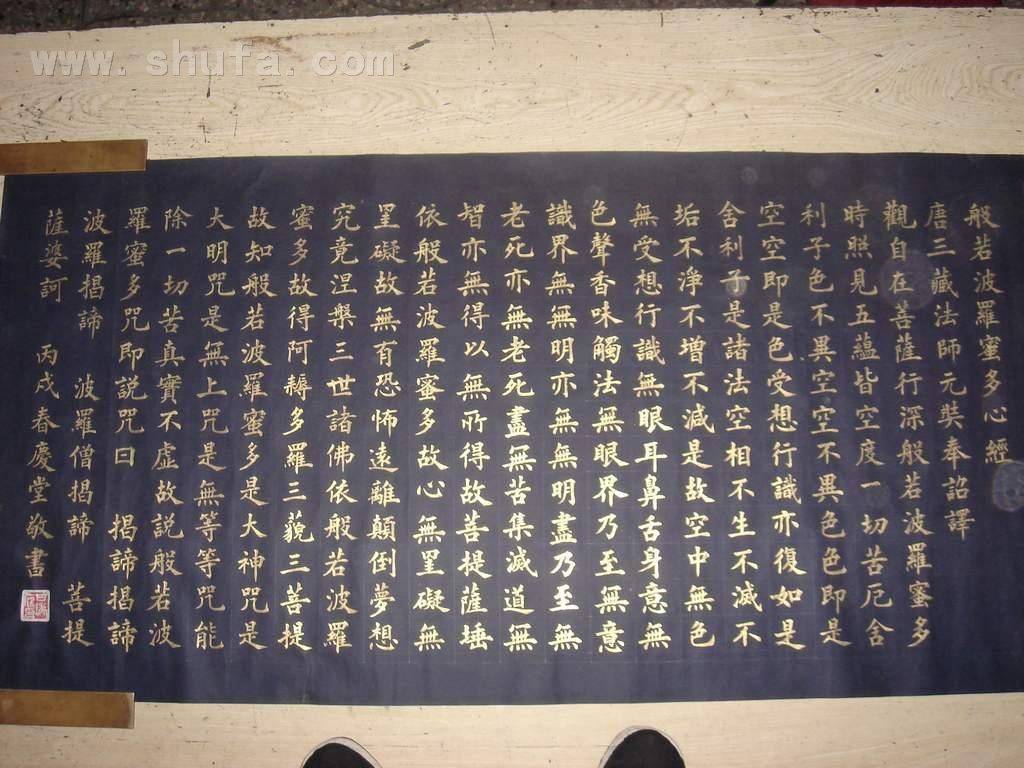 www.shufa.com
般若波羅蜜多心經
唐三藏法師元奘奉詔譯
觀自在菩薩行深般若波羅蜜多
時照見五蘊皆空度一切苦厄舍
利子色不異空空不異色色即是
空空即是色受想行識亦復如是
舍利子是諸法空相不生不滅不
垢不淨不增不減是故空中無色
無受想行識無眼耳鼻舌身意無
色聲香味觸法無眼界乃至無意
識界無無明亦無無明盡乃至無
老死亦無老死盡無苦集滅道無
智亦無得以無所得故菩提薩埵
依般若波羅蜜多故心無罣礙無
罣礙故無有恐怖遠離顛倒夢想
究竟涅槃三世諸佛依般若波羅
蜜多故得阿耨多羅三藐三菩提
故知般若波羅蜜多是大神咒是
大明咒是無上咒是無等等咒能
除一切苦真實不虛故說般若波
羅蜜多咒即說咒曰 揭諦揭諦
波羅揭諦 波羅僧揭諦 菩提
薩婆訶 丙戌春慶堂敬書